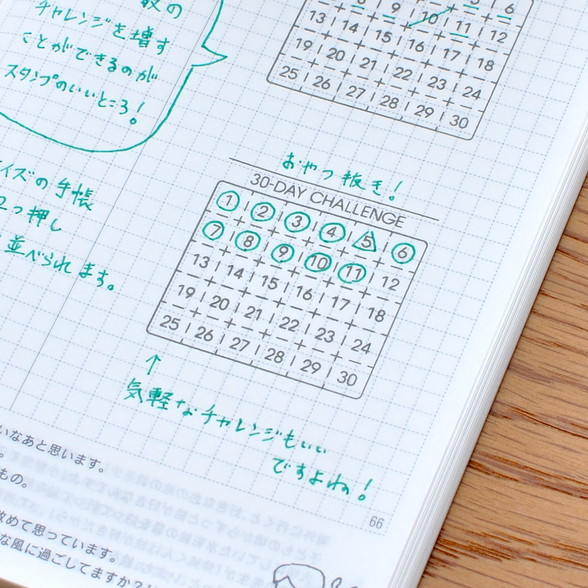 数の
チャレンジを増す
ことができるのが
スタンプのいいところ!
6
8 9 10 11 12
13 14 15 16 17 18
19 20 21 22 23 24
25 26 27 28 29 30
おやつ抜き!
30-DAY CHALLENGE
1 2 3 4 5 6
7 8 9 10 11 12
13 14 15 16 17 18
19 20 21 22 23 24
25 26 27 28 29 30
イズの手帳
2つ押し
並べられます。
↑
気軽なチャレンジもいい
ですよね!
66
いなあと思います。
もの。
改めて思っています。
な風に過ごしてますか?